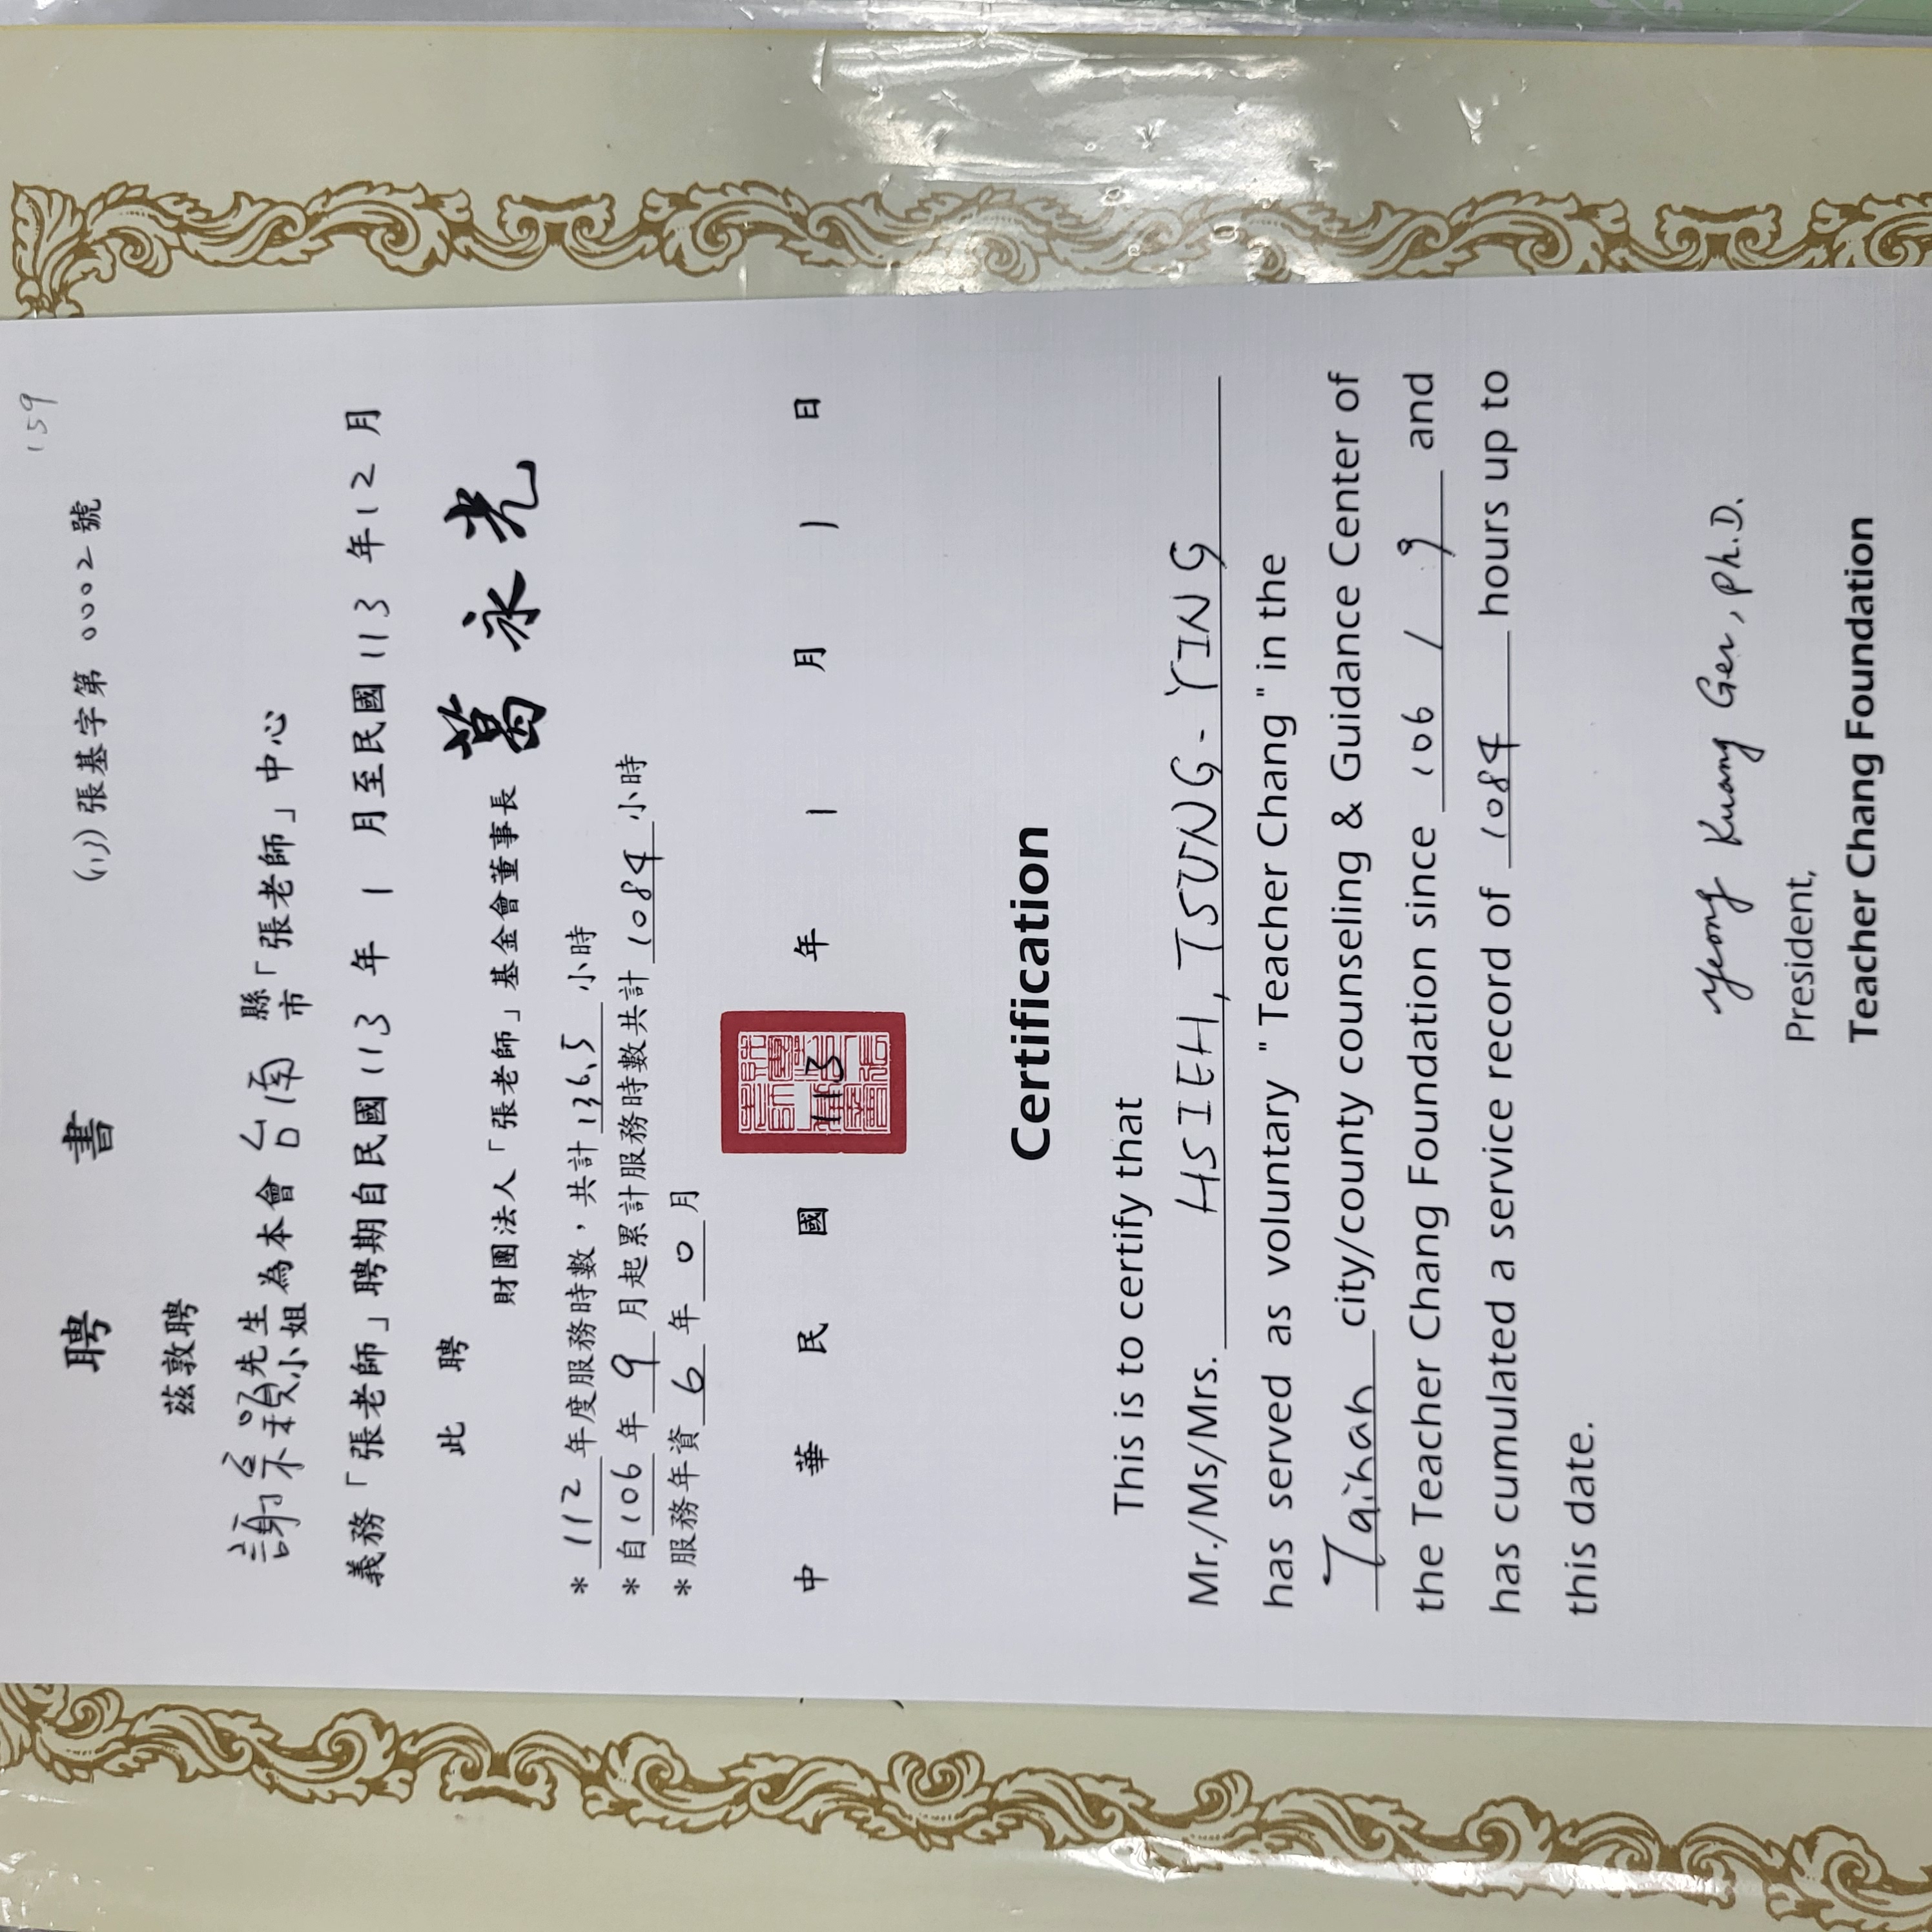 159
聘書
(113)張基字第0002號
茲敦聘
謝宗穎先生小姐為本會台南縣市「張老師」中心
義務「張老師」聘期自民國113年1月至民國113年12月
此聘
財團法人「張老師」基金會董事長 葛永光
*112年度服務時數,共計136.5小時
*自106年9月起累計服務時數共計1084小時
*服務年資6年0月
中華民國113年1月1日
財團法人張老師基金會
Certification
This is to certify that
Mr./Ms/Mrs. HSIEH, TSUNG-YING
has served as voluntary "Teacher Chang" in the
Tainan city/county counseling & Guidance Center of
the Teacher Chang Foundation since 106 / 9 and
has cumulated a service record of 1084 hours up to
this date.
Yeong Kuang Ger, Ph.D.
President,
Teacher Chang Foundation